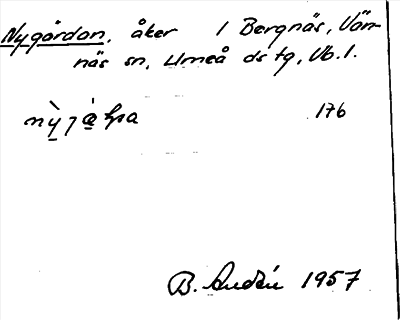 Nygårdan, åker i Bergnäs, Vän-
näs sn, Umeå ds tg, Vb. l.
176
B. Audén 1957